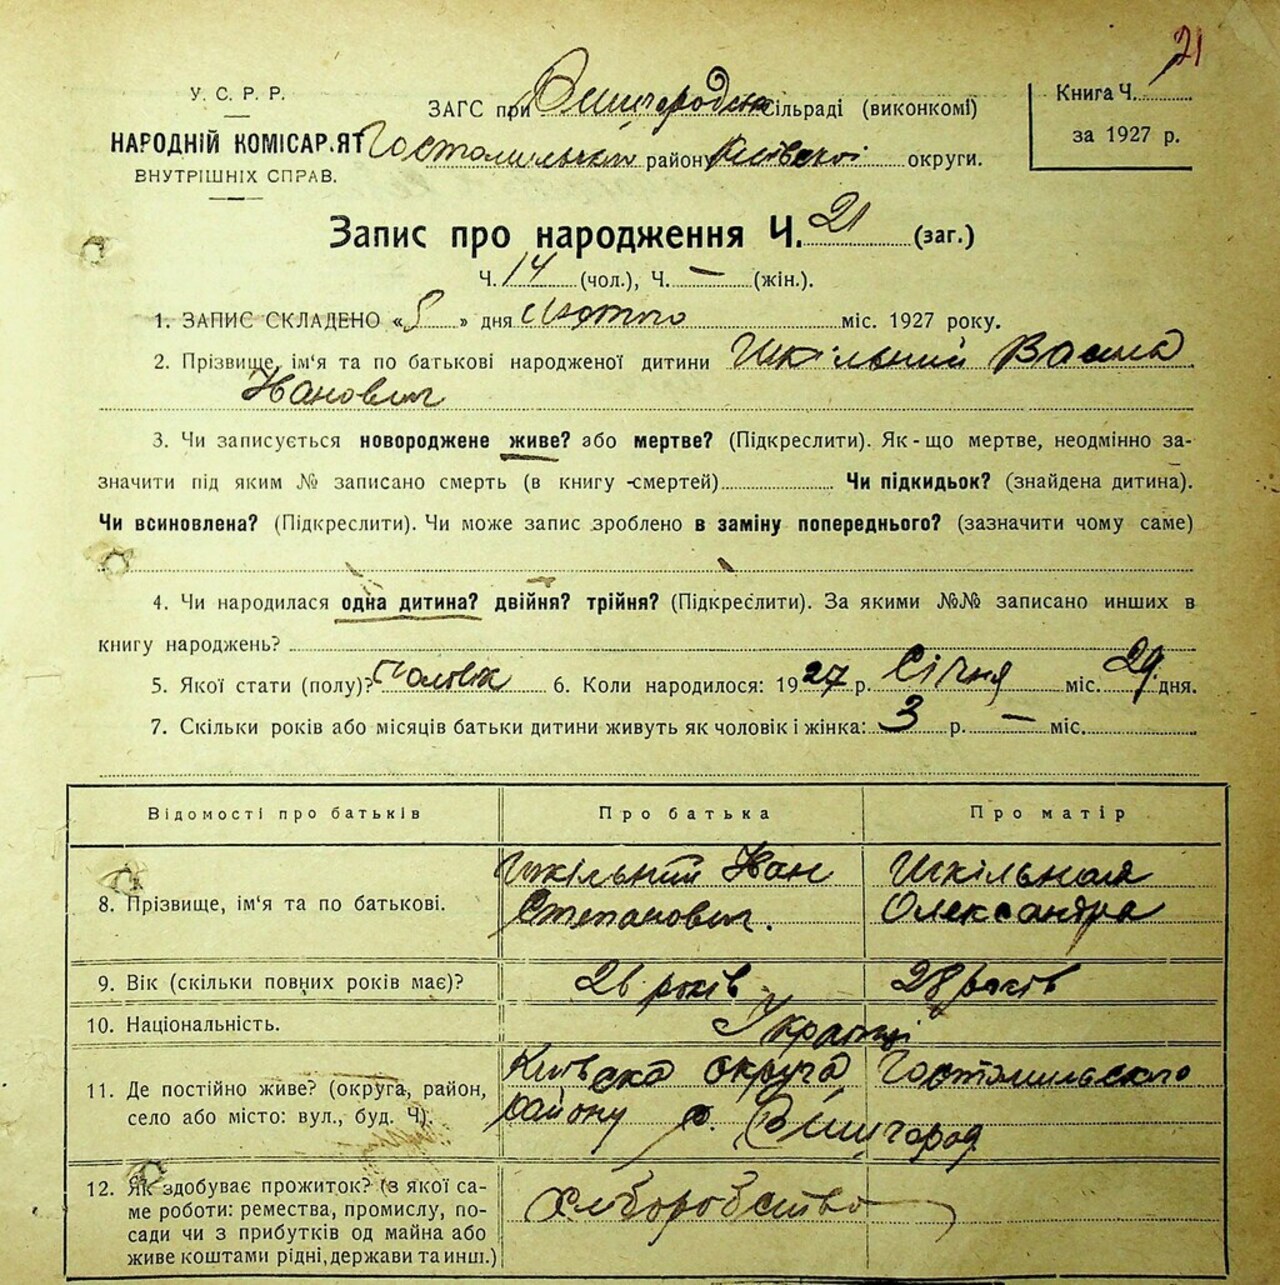 21
У. С. Р. Р.
НАРОДНІЙ КОМІСАР.ЯТ
ВНУТРІШНІХ СПРАВ.
ЗАГС при Вишгородській сільраді (виконкомі)
Гостомильського району Київської округи.
Книга Ч.
за 1927 р.
Запис про народження Ч. 21 (заг.)
Ч. 14 (чол.), Ч. — (жін.).
1. ЗАПИС СКЛАДЕНО « 5 » дня Лютого міс. 1927 року.
2. Прізвище, ім'я та по батькові народженої дитини Шкільний Василь
Иванович
3. Чи записується новороджене живе? або мертве? (Підкреслити). Як-що мертве, неодмінно за-
значити під яким № записано смерть (в книгу -смертей) Чи підкидьок? (знайдена дитина).
Чи всиновлена? (Підкреслити). Чи може запис зроблено в заміну попереднього? (зазначити чому саме)
4. Чи народилася одна дитина? двійня? трійня? (Підкреслити). За якими №№ записано инших в
книгу народжень?
5. Якої стати (полу)? Чоловік 6. Коли народилося: 1927 р. Січня міс. 29 дня.
7. Скільки років або місяців батьки дитини живуть як чоловік і жінка: 3 р. — міс.
Відомості про батьків Про батька Про матір
8. Прізвище, ім'я та по батькові. Шкільний Иван Степанович. Шкільная Олександра
9. Вік (скільки повних років має)? 26 років 28 років
10. Національність. Українці
11. Де постійно живе? (округа, район, село або місто: вул., буд. Ч). Київська округа Гостомильського району с. Вишгород
12. Як здобуває прожиток? (з якої са-
ме роботи: ремества, промислу, по-
сади чи з прибутків од майна або
живе коштами рідні, держави та инш.)
Хліборобство